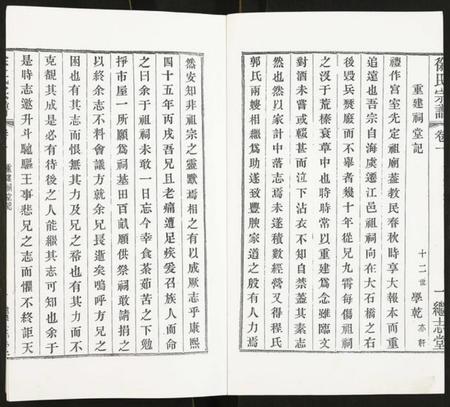 徐氏宗譜 卷一
重建祠堂記
十二世 學乾 亦軒
禮作宮室先定祖廟蓋教民春秋時享大報本而重
追遠也吾宗自海虞遷江邑祖祠向在大石橋之右
後毀兵燹廢而不舉者幾十年從兄九霄每傷祖祠
之沒于荒榛衰草中也時時常以重建爲念雖臨文
對酒未嘗或輟甚而泣下沾衣不知自禁蓋其素志
然也然以家計中落志焉未遂積數經營又得程氏
郭氏兩嫂相繼爲助遂致豐腴家道之般有人力焉
一 繼志堂
然安知非祖宗之靈默焉相之有以成厥志乎康熙
四十五年丙戌吾兄且老痛遭足疾爰召族人而命
之曰余于祖祠未敢一日忘今幸食茶茹苦之下勉
掙市屋一所願爲祠基田百畝願供祭祠敢請捐之
以終余志不料會議方就余兄長逝矣嗚呼方兄之
困也有其志而恨無其力及兄之裕也有其力而不
克覩其成是必有待後之人能繼其志可知也余于
是時志邀升斗馳驅王事悲兄之志而懼不終詎天
重建祠堂記